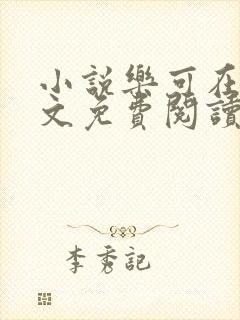 小說樂可在
文免費閱讀
李秀記